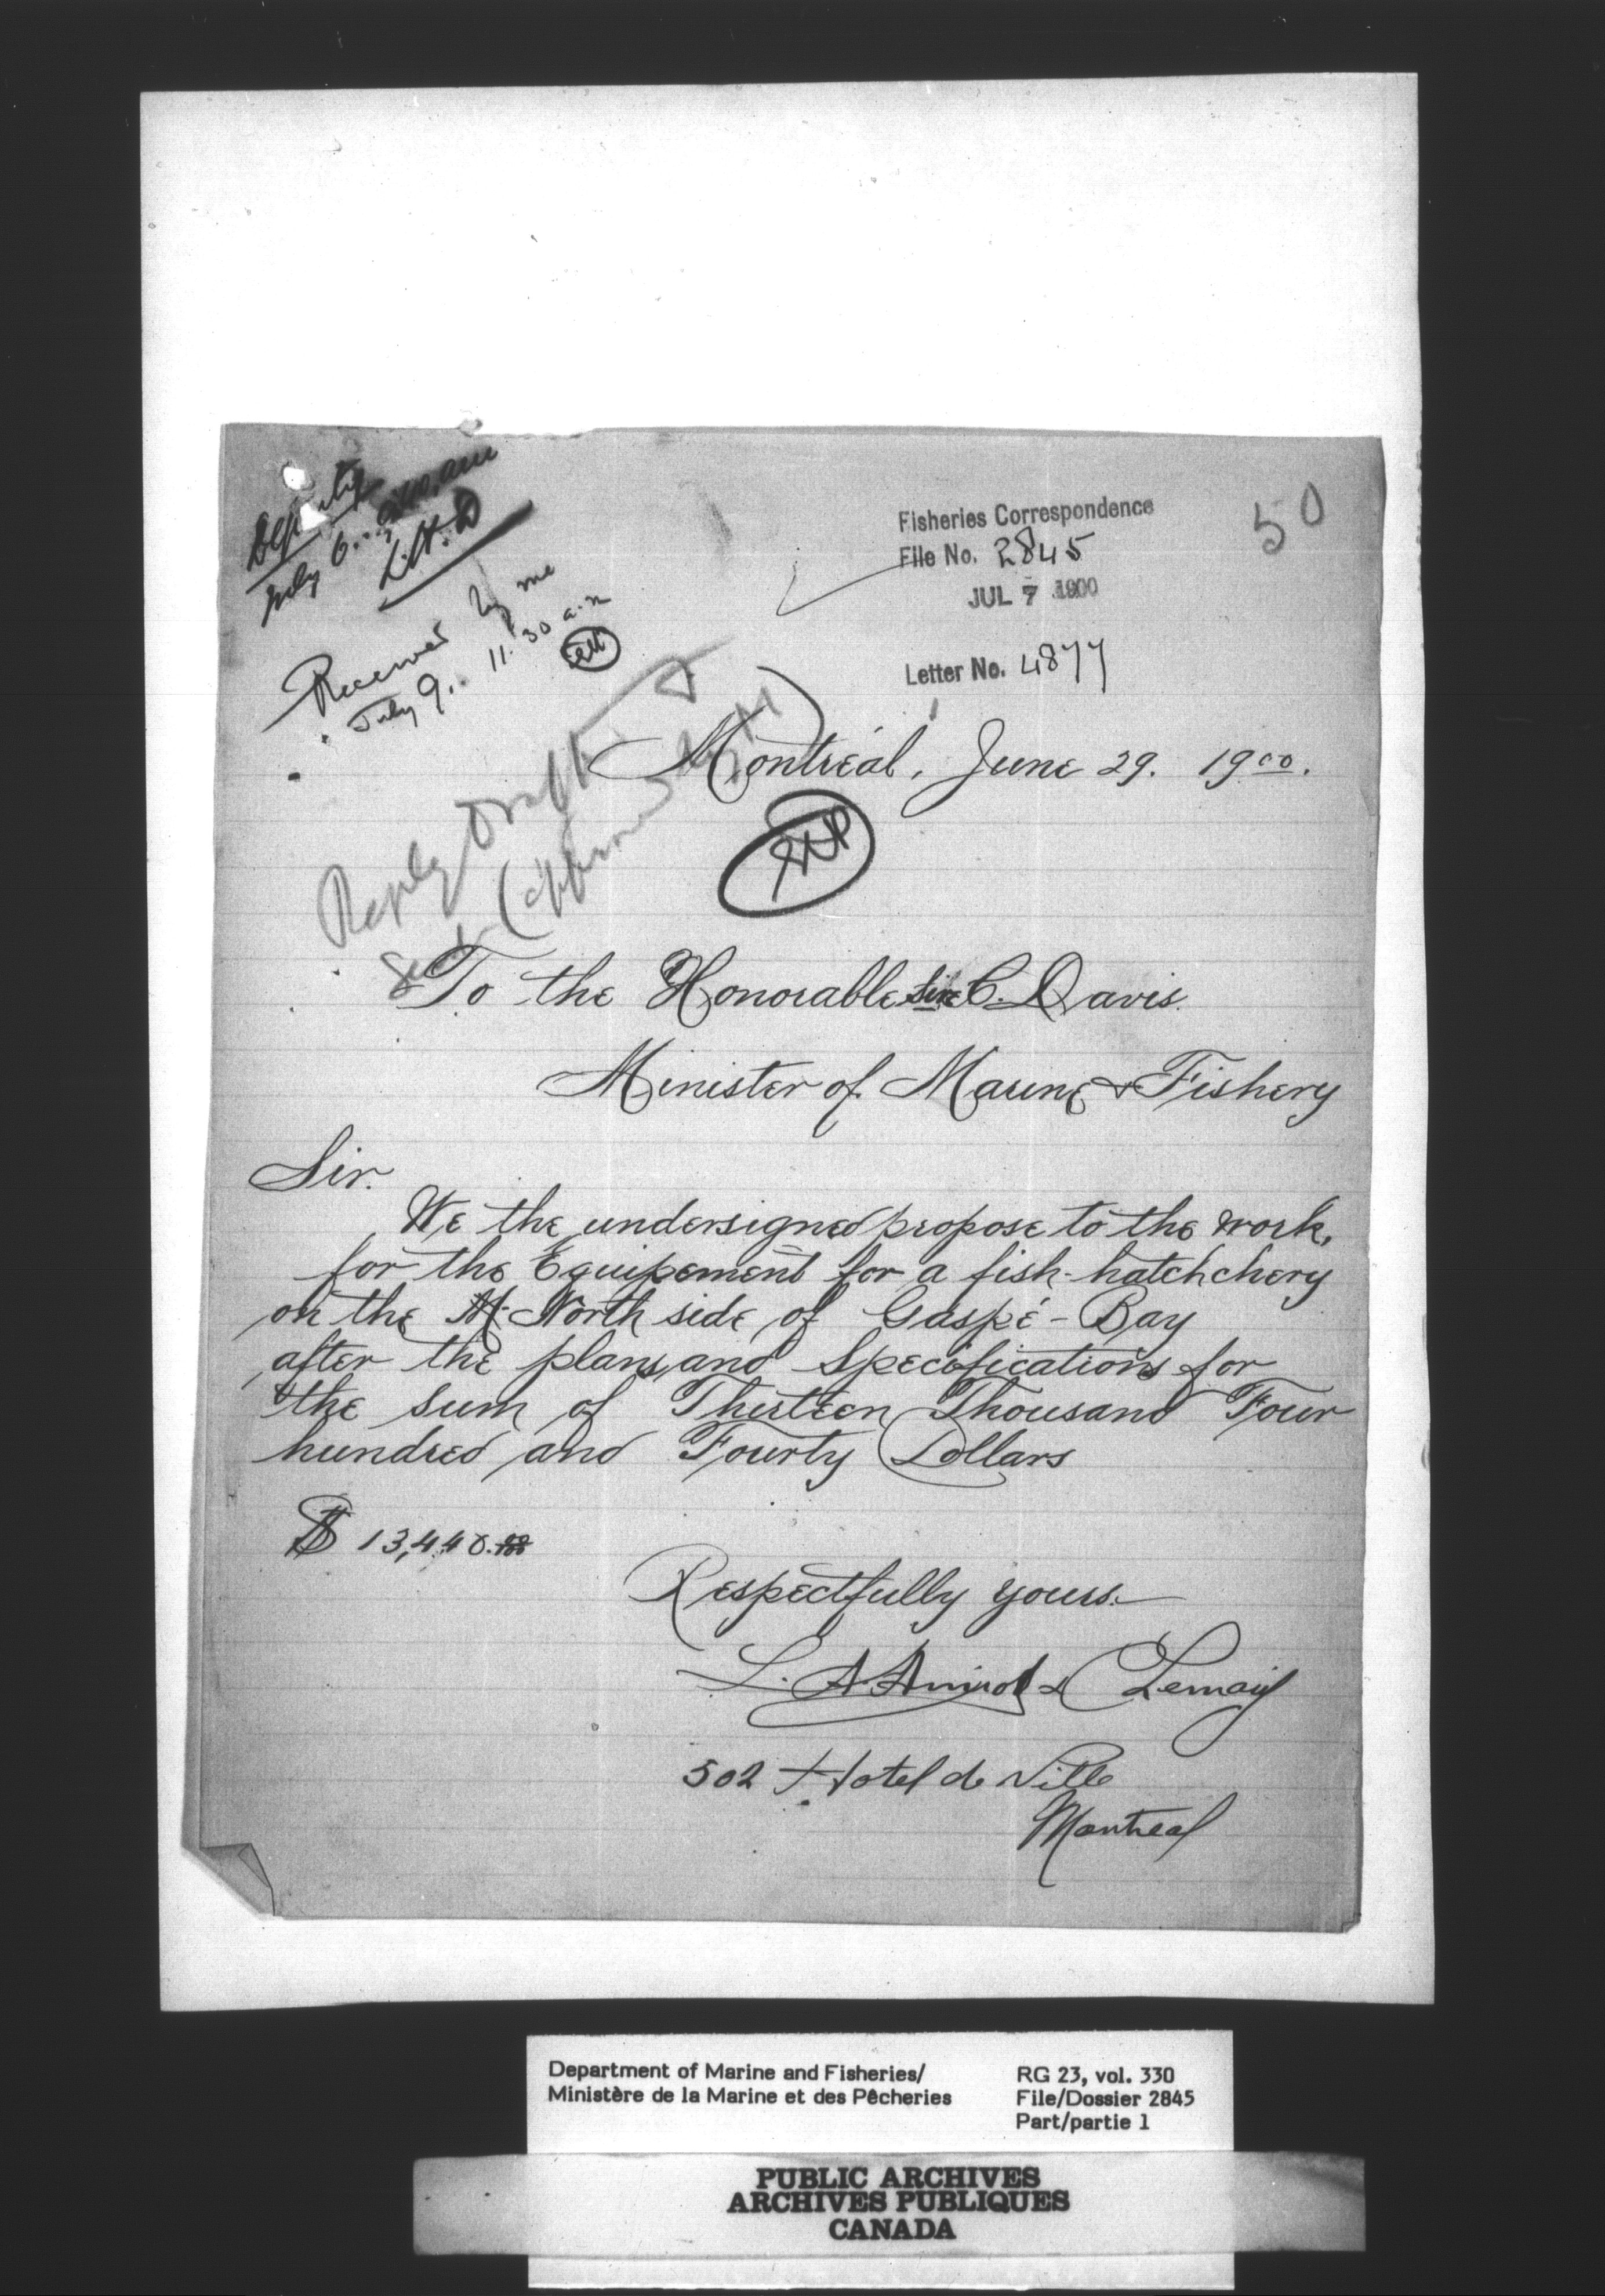 Deputy
July 6.
L.H.D
Received by me
July 9.. 11.30 a.m
Fisheries Correspondence
File No. 2845
JUL 7 1900
50
Letter No. 4877
Reply Draft
Montréal, June 29. 1900.
To the Honorable Sir C. Davis.
Minister of Marine & Fishery
Sir.
We the undersigned propose to the work,
for the Equipement for a fish-hatchchery
on the North side of Gaspé-Bay
after the plans, and Specifications for
the sum of Thirteen Thousand Four
hundred and Fourty Dollars
$ 13,440.00
Respectfully yours.
L. A Amiot & Lemay
502 Hotel de Ville
Montreal
Department of Marine and Fisheries/
Ministère de la Marine et des Pêcheries
RG 23, vol. 330
File/Dossier 2845
Part/partie 1
PUBLIC ARCHIVES
ARCHIVES PUBLIQUES
CANADA